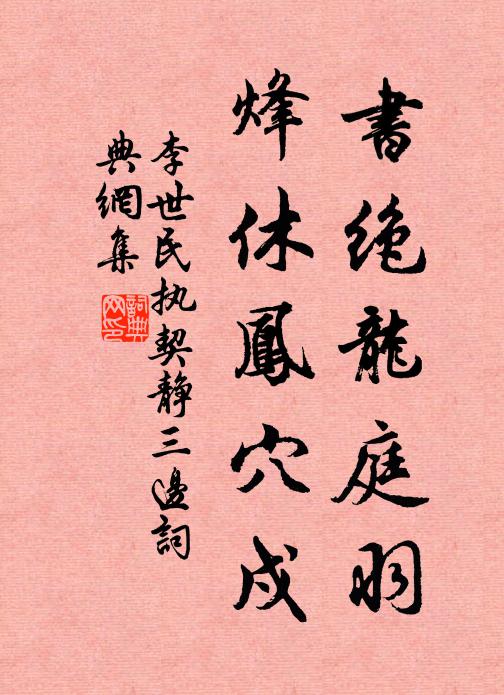 書絕龍庭羽
烽休鳳穴戍
李世民执契静三邊詞
典網集
詞典
网印